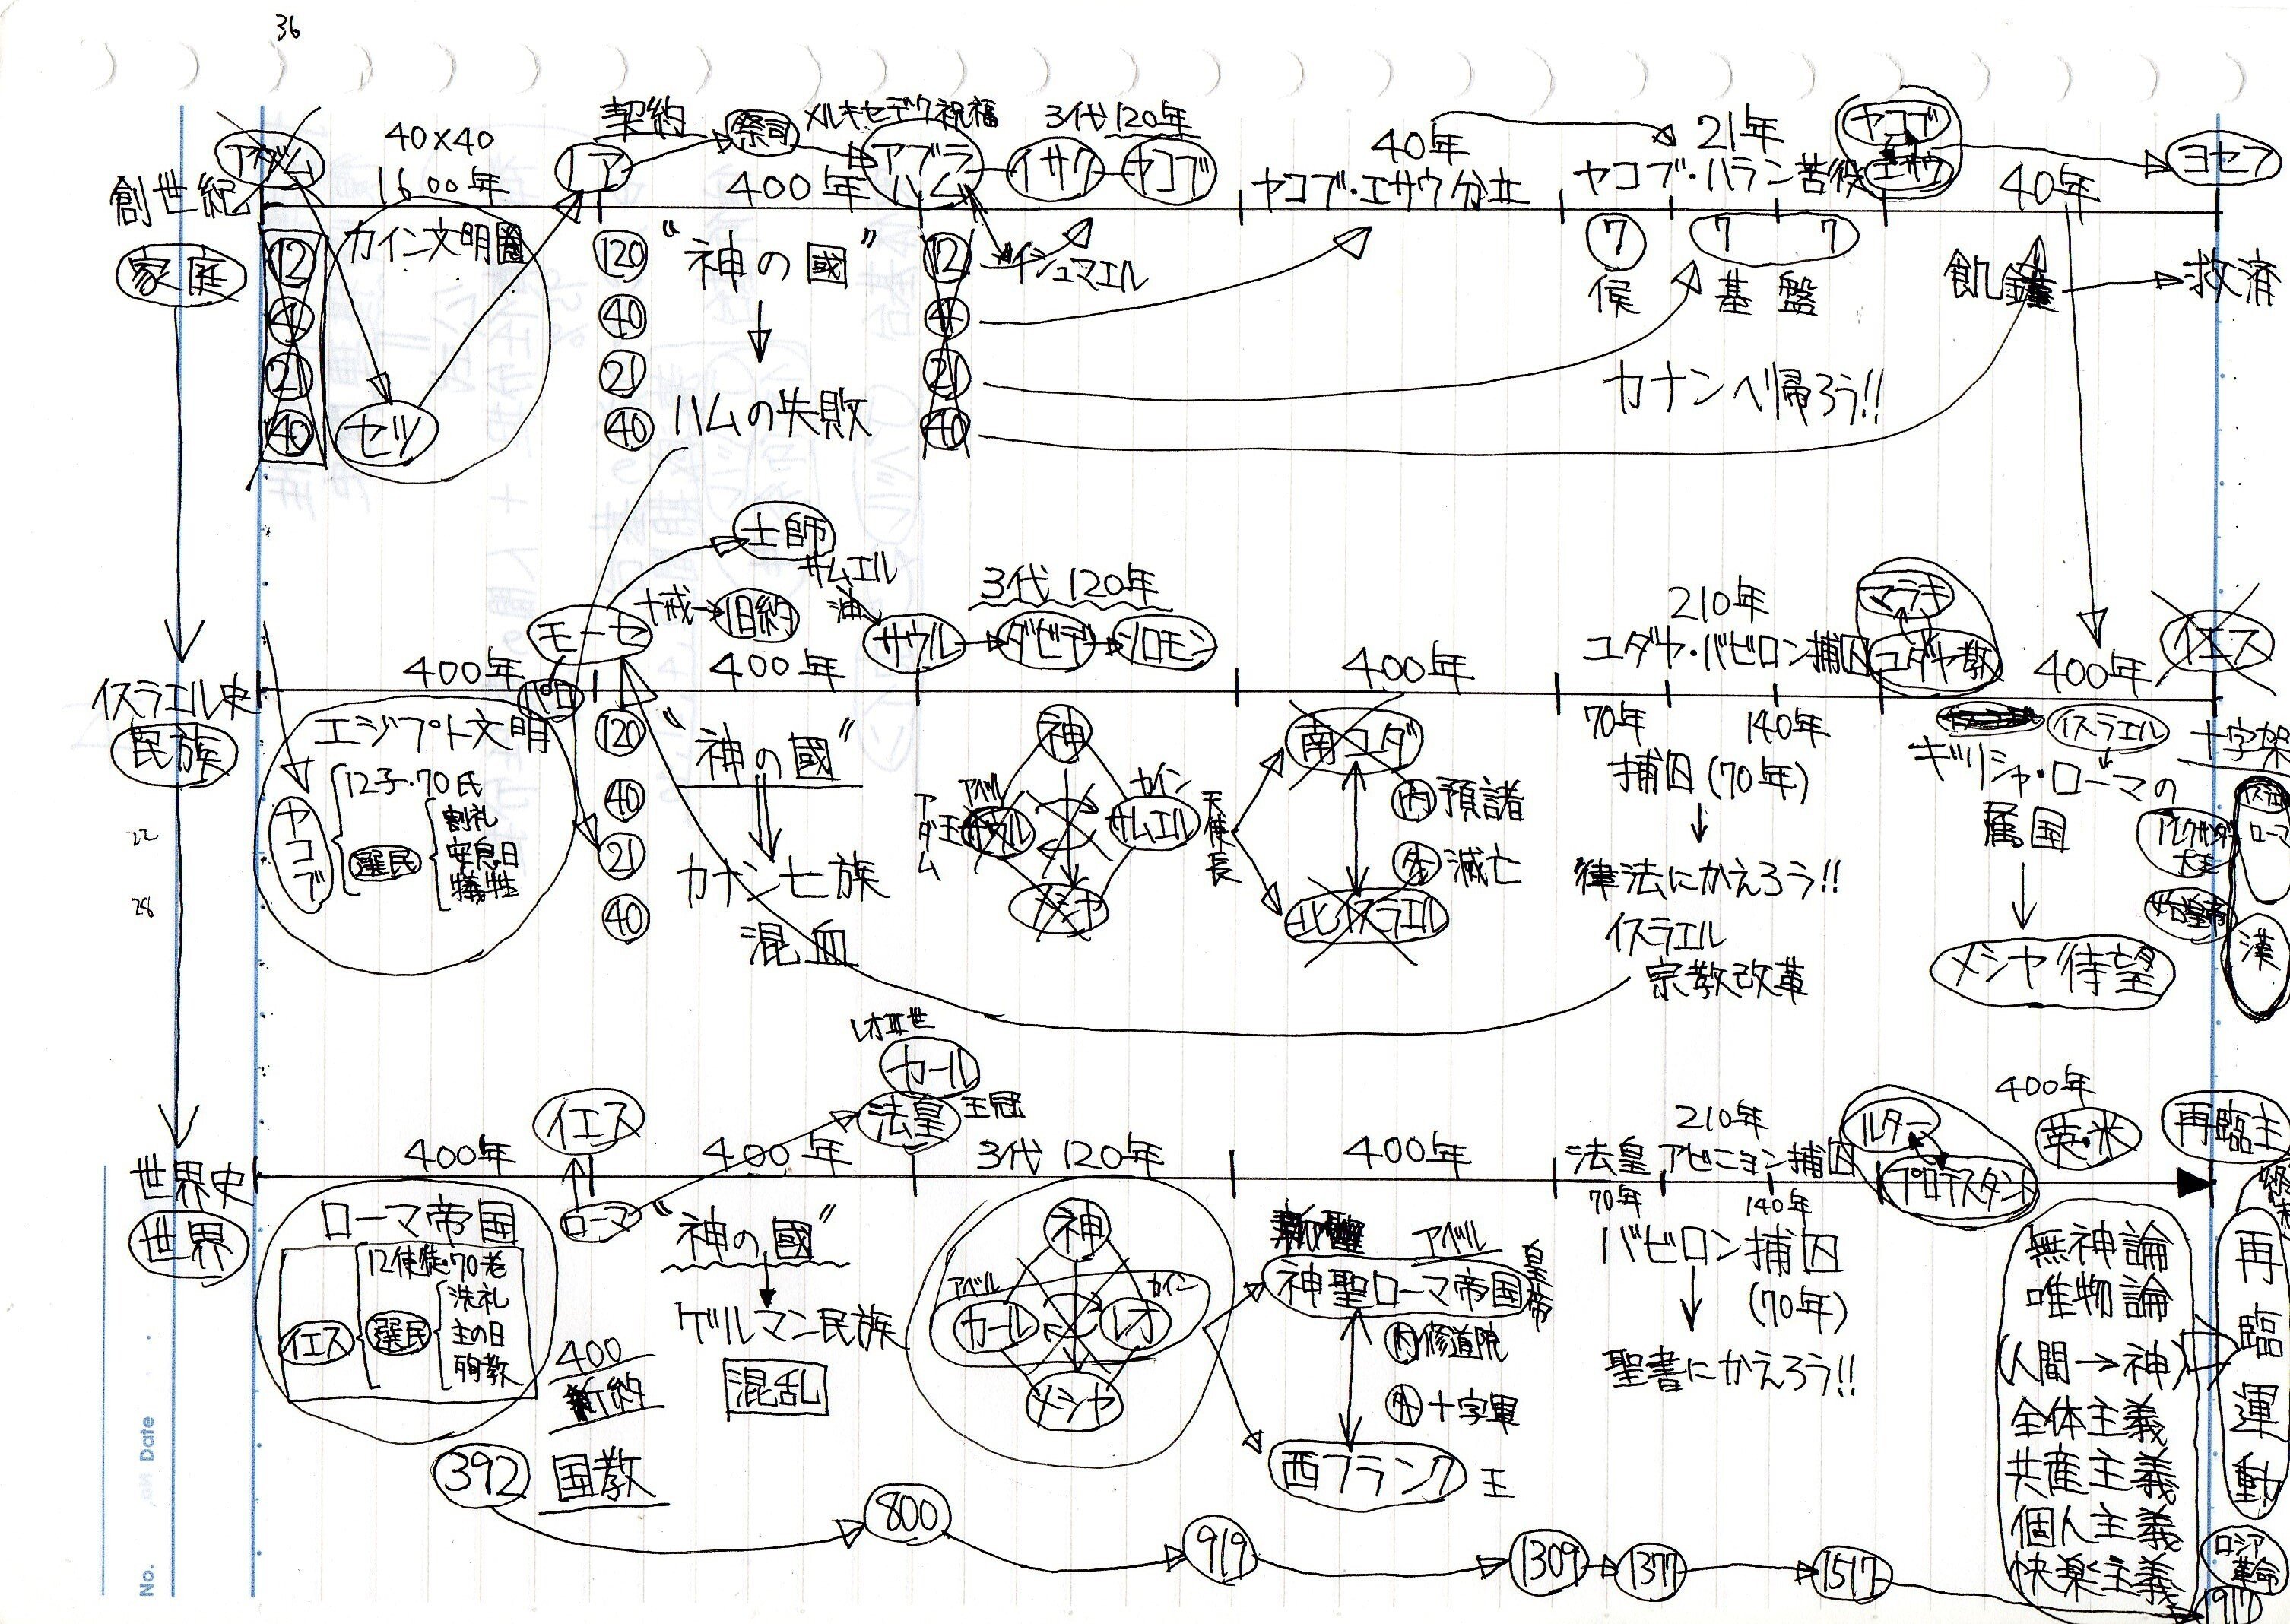 36
契約 祭司 メルキセデク祝福 3代 120年
アダム 40×40 ノア アブラハム イサク ヤコブ 40年 21年 ヤコブ エサウ ヨセフ
創世紀 1600年 400年 ヤコブ・エサウ分立 ヤコブ・ハラン苦役 40年
家庭 カイン文明圏 "神の國" イシュマエル 7 7 7 飢饉 救済
12 120 12 基盤
4 40 4
21 21 21
40 セツ 40 ハムの失敗 40 カナンへ帰ろう!!
士師
サムエル
十戒 旧約 油 3代 120年 210年 マラキ
モーセ サウル ダビデ ソロモン ユダヤ・バビロン捕囚 ユダヤ教 イエス
イスラエル史 400年 パロ 400年 400年 400年
民族 エジプト文明 120 "神の國" 神 南ユダ 70年 140年 イスラエル 十字架
ヤコブ 12子・70氏 40 アダム 王 アベル サウル カイン サムエル 天使長 内 預諸 捕囚(70年) ギリシャ・ローマの
割礼 属国 ローマ
22 選民 安息日 21 カナン七族 外 滅亡 律法にかえろう!!
28 犠牲 40 混血 メシヤ 北イスラエル イスラエル 漢
宗教改革 メシヤ待望
レオⅢ世
カール
イエス 法皇 王冠 400年
210年 ルター 英・米 再臨主
400年 400年 3代 120年 400年 法皇アビニョン捕囚 プロテスタント
世界史 ローマ 70年 140年
世界 ローマ帝国 "神の國" 神 アベル バビロン捕囚 無神論
12使徒・70老 神聖ローマ帝国 皇帝 (70年) 唯物論
イエス 選民 洗礼 ゲルマン民族 アベル カール カイン レオ 内 修道院 (人間→神) 再臨運動
主の日 400 混乱 聖書にかえろう!!
殉教 新約 メシヤ 外 十字軍 全体主義
392 国教 西フランク 王 共産主義
800 個人主義
919 1309 1377 1517 快楽主義 ロシア革命
1917
No. Date